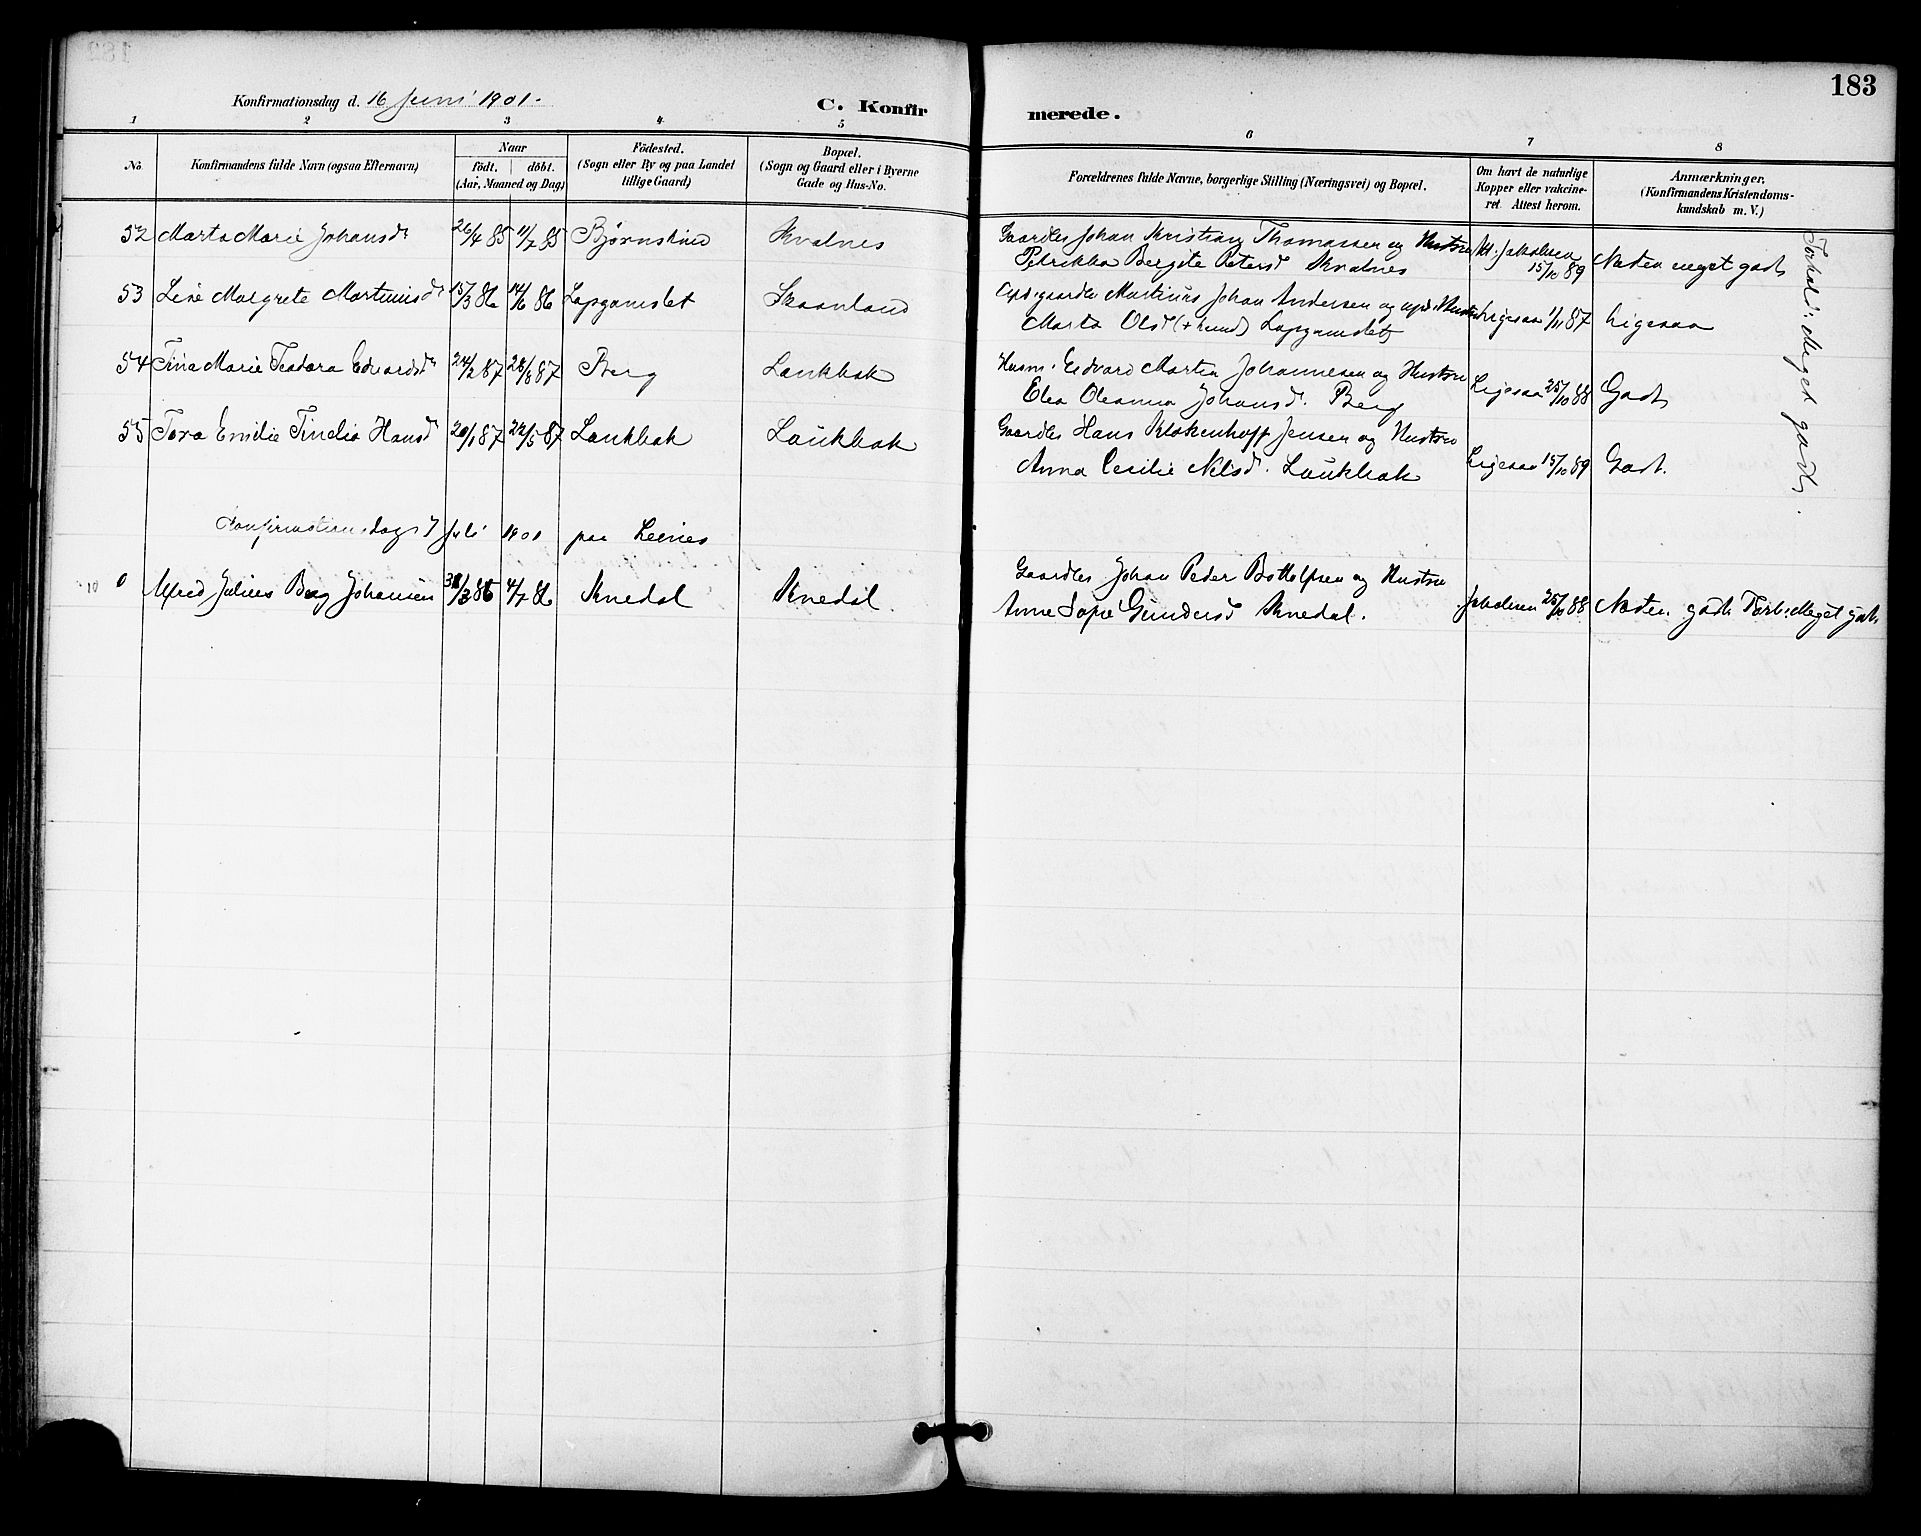 183
Konfirmationsdag d. 16 Juni 1901.
C. Konfirmerede.
1 2 3 4 5 6 7 8
No. Konfirmandens fulde Navn (ogsaa Efternavn) Naar födt. döbt. (Aar, Maaned og Dag) Födested. (Sogn eller By og paa Landet tillige Gaard) Bopæl. (Sogn og Gaard eller i Byerne Gade og Hus-No. Forældrenes fulde Navne, borgerlige Stilling (Næringsvei) og Bopæl. Om havt de naturlige Kopper eller vakcineret. Attest herom. Anmærkninger. (Konfirmandens Kristendomskundskab m. V.)
52 Marta Marie Johansd. 26/4 85 11/7 85 Bjørnskind Kvalnes Gaardbr Johan Kristian Thomassen og Hustru
Petrikka Bergite Petersd Kvalnes Jakobsen 15/10 89 Næsten meget godt
53 Lise Margrete Martinusd. 15/3 86 14/6 86 Lapgamslet Skaanland Opds. gaardbr Martinus Johan Andersen og Hustru
Marta Olsd (+ kund) Lapgamslet Ligesaa 1/11 87 Ligesaa
54 Tina Marie Teodora Edvardsd. 24/2 87 28/8 87 Berg Laukbak Husm. Edvard Martin Johannesen og Hustru
Elea Oleanna Johansd. Berg Ligesaa 25/10 88 Godt
55 Tora Emilie Tinelia Hansd 20/1 87 22/5 87 Laukbak Laukbak Gaardbr Hans Klokenhoff Jensen og Hustru
Anna Cecilie Nilsd. Laukbak Ligesaa 15/10 89 Godt.
Forhol: Meget godt.
Konfirmationsdag 7 Juli 1901 paa Leines
0 Alfred Julius Berg Johansen 31/3 86 4/7 86 Knedal Knedal Gaardbr Johan Peder Bottolfsen og Hustru
Anne Sopie Gundersd Knedal. Jakobsen 25/10 88 Næsten godt. Forh: Meget godt